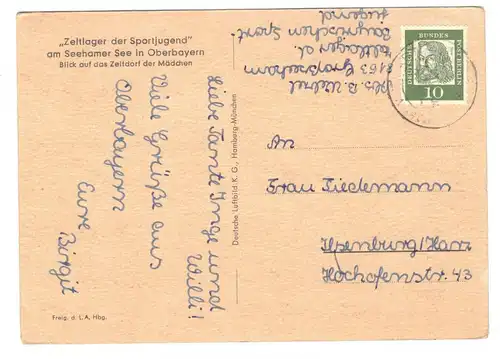 „Zeltlager der Sportjugend"
am Seehamer See in Oberbayern
Blick auf das Zeltdorf der Mädchen
Liebe Tante Inge und
Willi!
Viele Grüße aus
Oberbayern
Eure
Birgit
Freig. d. L. A. Hbg.
Deutsche Luftbild K. G., Hamburg-München
Abs. B.
8163 Großseeham
Zeltlager d.
Bayrischen Sport-
jugend
DEUTSCHE BUNDESPOST BERLIN
10
An
Frau Tiedemann
Ilsenburg/Harz
Hochofenstr. 43